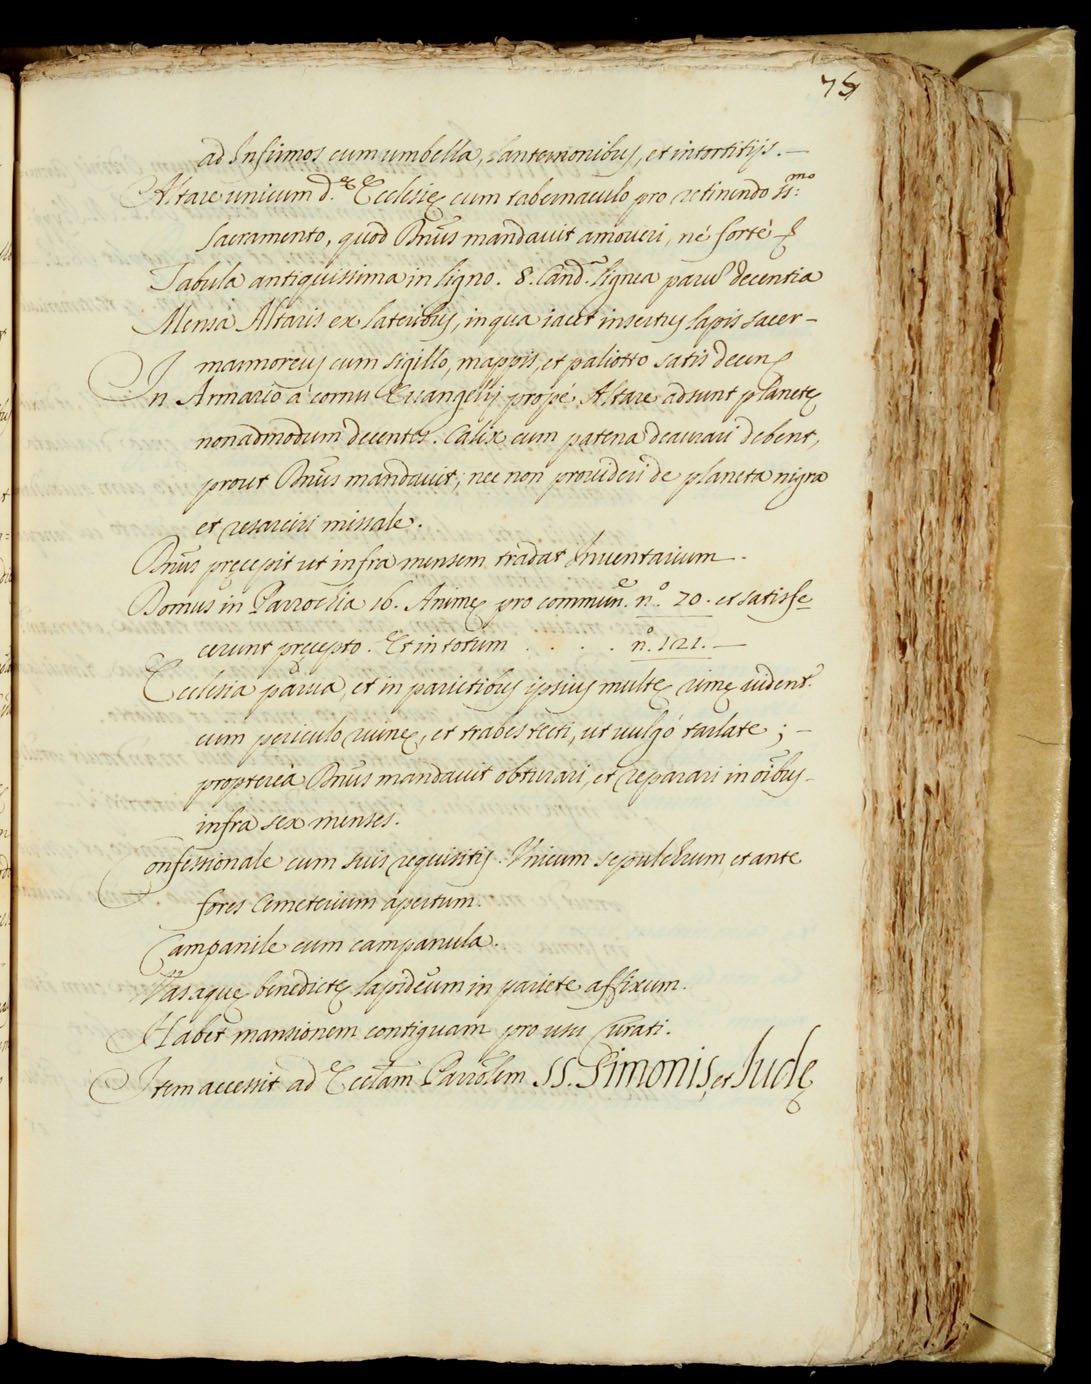 75
ad Infirmos cum umbella, lanternonibus, et intortitijs.—
Altare unicum d.ę Ecclesię cum tabernaculo pro retinendo SS:mo
Sacramento, quod Dnus mandavit amoveri, nè fortè
Tabula antiquissima in ligno. 8. Cand. lignea parũ decentia
Mensa Altaris ex lateribus, in qua iacet insertus lapis sacer—
marmoreus cum sigillo, mappis, et paliotto satis decen
In Armario à cornu Evangelij propè Altare adsunt planetę
non admodum decentes. Calix cum patena deaurari debent,
prout Dnus mandavit; nec non provideri de planeta nigra
et resarciri missale.
Dnus pręcepit ut infra mensem tradat Inventarium.
Domus in Parrochia 16. Animę pro commun. nº. 70. et satisfe
cerunt pręcepto. Et in totum . . . . nº. 121.—
Ecclesia parva, et in parietibus ipsius multę rimę vident.
cum periculo ruinę, et trabes tecti, ut vulgò tarlate; —
proptereà Dnus mandavit obturari, et reparari in oĩbus—
infra sex menses.
Confessionale cum suis requisitis. Unicum sepulchrum, et ante
fores Cemeterium apertum.
Campanile cum campanula.
Vas aquę benedictę lapideum in pariete affixum.
Habet mansionem contiguam pro usu Curati.
Item accessit ad Ecclam Parrolem SS. Simonis, et Iudę